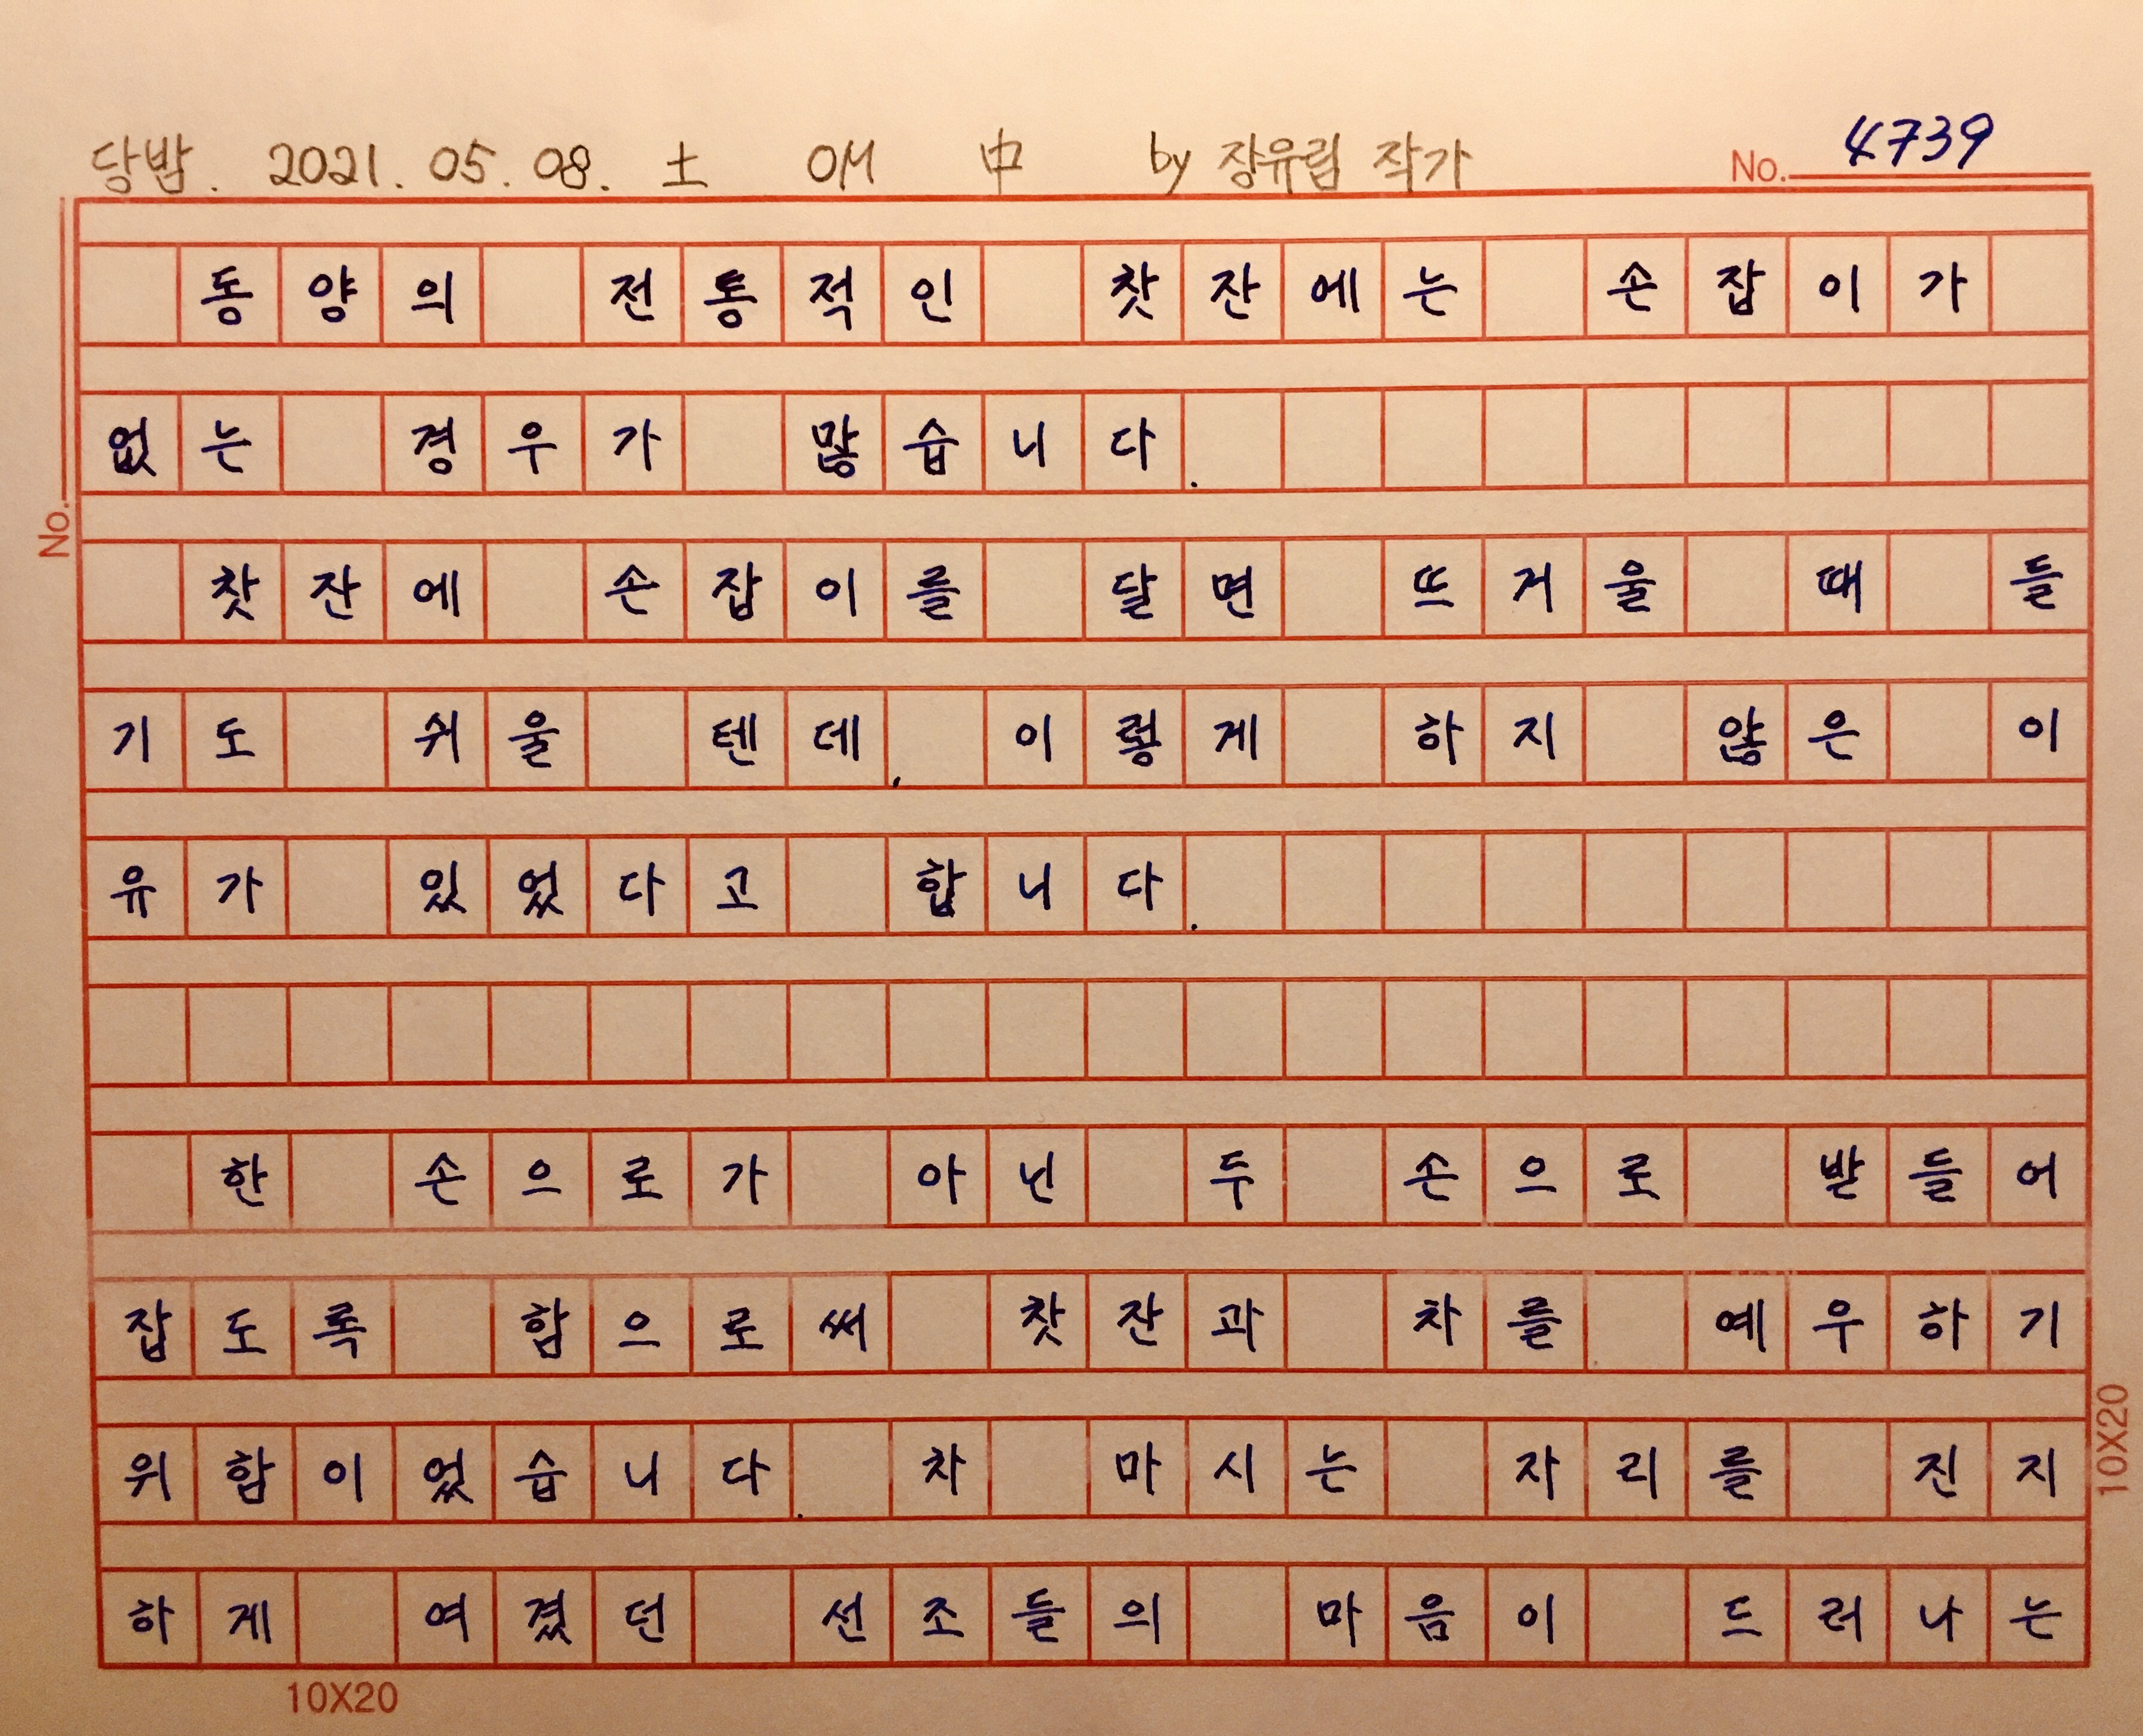 당밥. 2021. 05. 08. 土 OM 中 by 장유림 작가
No. 4739
동양의 전통적인 찻잔에는 손잡이가
없는 경우가 많습니다.
No.
찻잔에 손잡이를 달면 뜨거울 때 들
기도 쉬울 텐데, 이렇게 하지 않은 이
유가 있었다고 합니다.
한 손으로가 아닌 두 손으로 받들어
잡도록 함으로써 찻잔과 차를 예우하기
위함이었습니다. 차 마시는 자리를 진지
하게 여겼던 선조들의 마음이 드러나는
10X20
10X20